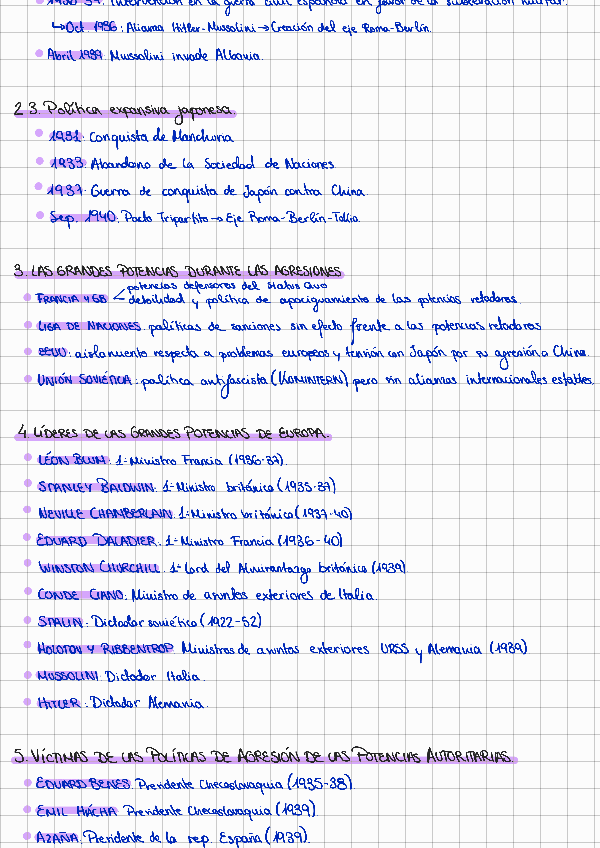 1936-39: Intervención en la guerra civil española en favor de la sublevación militar.
↳Oct. 1936: Alianza Hitler-Mussolini → Creación del eje Roma-Berlín.
Abril 1939. Mussolini invade Albania.
2.3. Política expansiva japonesa
1931: Conquista de Manchuria
1933: Abandono de la Sociedad de Naciones
1937: Guerra de conquista de Japón contra China.
Sep. 1940. Pacto Tripartito → Eje Roma-Berlín-Tokio.
3. LAS GRANDES POTENCIAS DURANTE LAS AGRESIONES
potencias defensoras del Status Quo
FRANCIA Y GB < debilidad y política de apaciguamiento de las potencias retadoras.
LIGA DE NACIONES: políticas de sanciones sin efecto frente a las potencias retadoras
EEUU: aislamiento respecto a problemas europeos y tensión con Japón por su agresión a China.
UNIÓN SOVIÉTICA: política antifascista (KOMINTERN) pero sin alianzas internacionales estables.
4. LÍDERES DE LAS GRANDES POTENCIAS DE EUROPA.
LÉON BLUM: 1º Ministro Francia (1936-37).
STANLEY BALDWIN: 1º Ministro británico (1935-37)
NEVILLE CHAMBERLAIN: 1º Ministro británico (1937-40)
EDUARD DALADIER: 1º Ministro Francia (1936-40)
WINSTON CHURCHILL: 1º Lord del Almirantazgo británico (1939)
CONDE CIANO: Ministro de asuntos exteriores de Italia.
STALIN: Dictador soviético (1922-52)
MOLOTOV Y RIBBENTROP: Ministros de asuntos exteriores URSS y Alemania (1939)
MUSSOLINI: Dictador Italia.
HITLER: Dictador Alemania.
5. VÍCTIMAS DE LAS POLÍTICAS DE AGRESIÓN DE LAS POTENCIAS AUTORITARIAS.
EDUARD BENES: Presidente Checoslovaquia (1935-38).
EMIL HÁCHA: Presidente Checoslovaquia (1939).
AZAÑA: Presidente de la rep. España (1939).